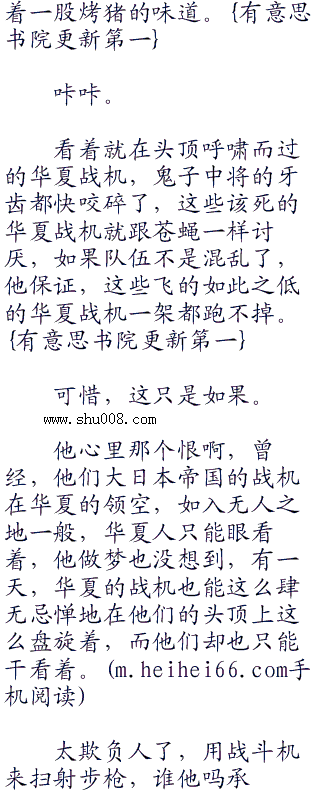 着一股烤猪的味道。{有意思
书院更新第一}
咔咔。
看着就在头顶呼啸而过
的华夏战机，鬼子中将的牙
齿都快咬碎了，这些该死的
华夏战机就跟苍蝇一样讨
厌，如果队伍不是混乱了，
他保证，这些飞的如此之低
的华夏战机一架都跑不掉。
{有意思书院更新第一}
可惜，这只是如果。
www.shu008.com
他心里那个恨啊，曾
经，他们大日本帝国的战机
在华夏的领空，如入无人之
地一般，华夏人只能眼看
着，他做梦也没想到，有一
天，华夏的战机也能这么肆
无忌惮地在他们的头顶上这
么盘旋着，而他们却也只能
干看着。(m.heihei66.com手
机阅读)
太欺负人了，用战斗机
来扫射步枪，谁他吗承